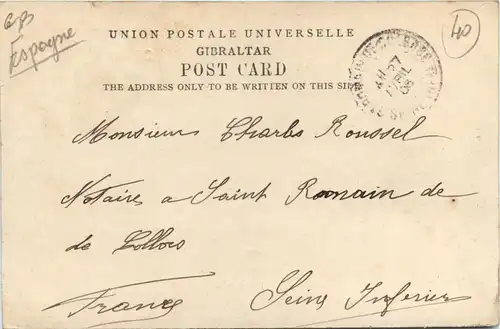 Espagne
40
UNION POSTALE UNIVERSELLE
GIBRALTAR
POST CARD
THE ADDRESS ONLY TO BE WRITTEN ON THIS SIDE
27
Monsieur Charles Roussel
Notaire a Saint Romain de
de Collbos
France Seine Inferieu